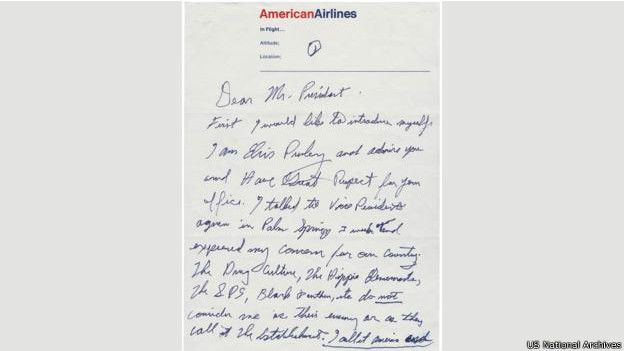 AmericanAirlines
In Flight...
Altitude;
Location;
1
Dear Mr. President.
First I would like to introduce myself.
I am Elvis Presley and admire you
and Have Great Respect for your
office. I talked to Vice President
Agnew in Palm Springs and
expressed my concern for our country.
The Drug Culture, The Hippie Elements,
The SDS, Black Panthers, etc do not
consider me as their enemy or as they
call it the Establishment. I call it America and
US National Archives